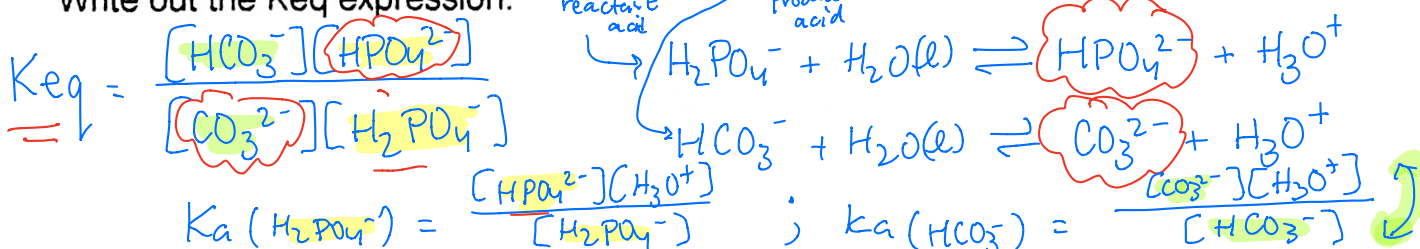 Write out the Keq expression.
reactant acid
product acid
Keq = [HCO₃⁻][HPO₄²⁻] / [CO₃²⁻][H₂PO₄⁻]
H₂PO₄⁻ + H₂O(l) ⇌ HPO₄²⁻ + H₃O⁺
HCO₃⁻ + H₂O(l) ⇌ CO₃²⁻ + H₃O⁺
Ka (H₂PO₄⁻) = [HPO₄²⁻][H₃O⁺] / [H₂PO₄⁻] ; Ka (HCO₃⁻) = [CO₃²⁻][H₃O⁺] / [HCO₃⁻]